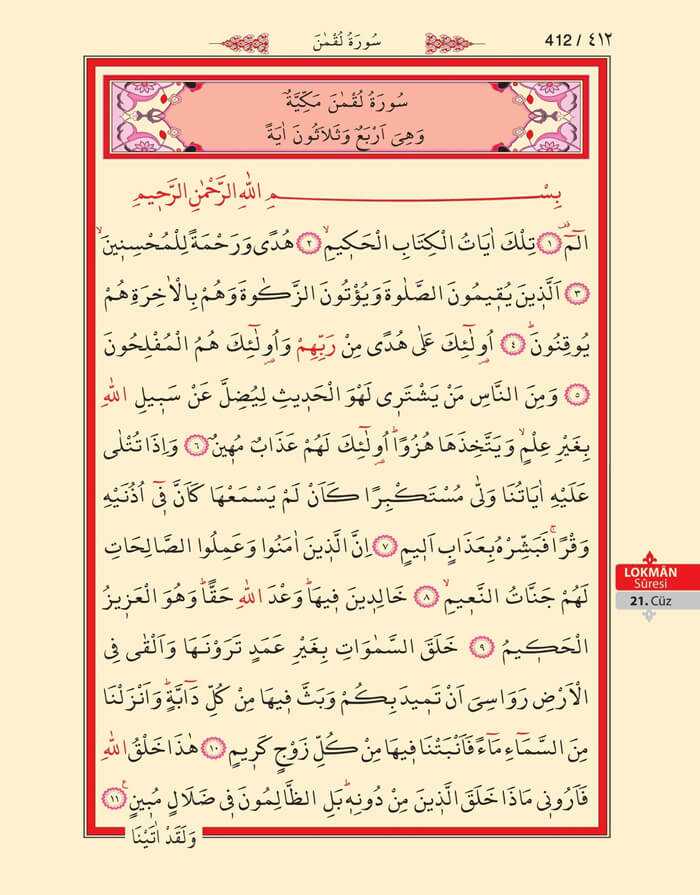 سُورَةُ لُقْمٰنَ
412 / ٤١٢
سُورَةُ لُقْمٰنَ مَكِّيَّةٌ
وَهِيَ اَرْبَعٌ وَثَلَاثُونَ اٰيَةً
بِسْــــــــمِ اللّٰهِ الرَّحْمٰنِ الرَّح۪يمِ
الٓمٓۜ ﴿١﴾ تِلْكَ اٰيَاتُ الْكِتَابِ الْحَك۪يمِۙ ﴿٢﴾ هُدًى وَرَحْمَةً لِلْمُحْسِن۪ينَۙ
﴿٣﴾ اَلَّذ۪ينَ يُق۪يمُونَ الصَّلٰوةَ وَيُؤْتُونَ الزَّكٰوةَ وَهُمْ بِالْاٰخِرَةِ هُمْ
يُوقِنُونَۜ ﴿٤﴾ اُو۬لٰٓئِكَ عَلٰى هُدًى مِنْ رَبِّهِمْ وَاُو۬لٰٓئِكَ هُمُ الْمُفْلِحُونَ
﴿٥﴾ وَمِنَ النَّاسِ مَنْ يَشْتَر۪ي لَهْوَ الْحَد۪يثِ لِيُضِلَّ عَنْ سَب۪يلِ اللّٰهِ
بِغَيْرِ عِلْمٍۗ وَيَتَّخِذَهَا هُزُوًاۜ اُو۬لٰٓئِكَ لَهُمْ عَذَابٌ مُه۪ينٌ ﴿٦﴾ وَاِذَا تُتْلٰى
عَلَيْهِ اٰيَاتُنَا وَلّٰى مُسْتَكْبِرًا كَاَنْ لَمْ يَسْمَعْهَا كَاَنَّ ف۪ٓي اُذُنَيْهِ
وَقْرًاۚ فَبَشِّرْهُ بِعَذَابٍ اَل۪يمٍ ﴿٧﴾ اِنَّ الَّذ۪ينَ اٰمَنُوا وَعَمِلُوا الصَّالِحَاتِ
لَهُمْ جَنَّاتُ النَّع۪يمِۙ ﴿٨﴾ خَالِد۪ينَ ف۪يهَاۜ وَعْدَ اللّٰهِ حَقًّاۜ وَهُوَ الْعَز۪يزُ
الْحَك۪يمُ ﴿٩﴾ خَلَقَ السَّمٰوَاتِ بِغَيْرِ عَمَدٍ تَرَوْنَهَا وَاَلْقٰى فِي
الْاَرْضِ رَوَاسِيَ اَنْ تَم۪يدَ بِكُمْ وَبَثَّ ف۪يهَا مِنْ كُلِّ دَٓابَّةٍۜ وَاَنْزَلْنَا
مِنَ السَّمَٓاءِ مَٓاءً فَاَنْبَتْنَا ف۪يهَا مِنْ كُلِّ زَوْجٍ كَر۪يمٍ ﴿١٠﴾ هٰذَا خَلْقُ اللّٰهِ
فَاَرُون۪ي مَاذَا خَلَقَ الَّذ۪ينَ مِنْ دُونِه۪ۜ بَلِ الظَّالِمُونَ ف۪ي ضَلَالٍ مُب۪ينٍ۟ ﴿١١﴾
وَلَقَدْ اٰتَيْنَا
LOKMÂN
Sûresi
21. Cüz